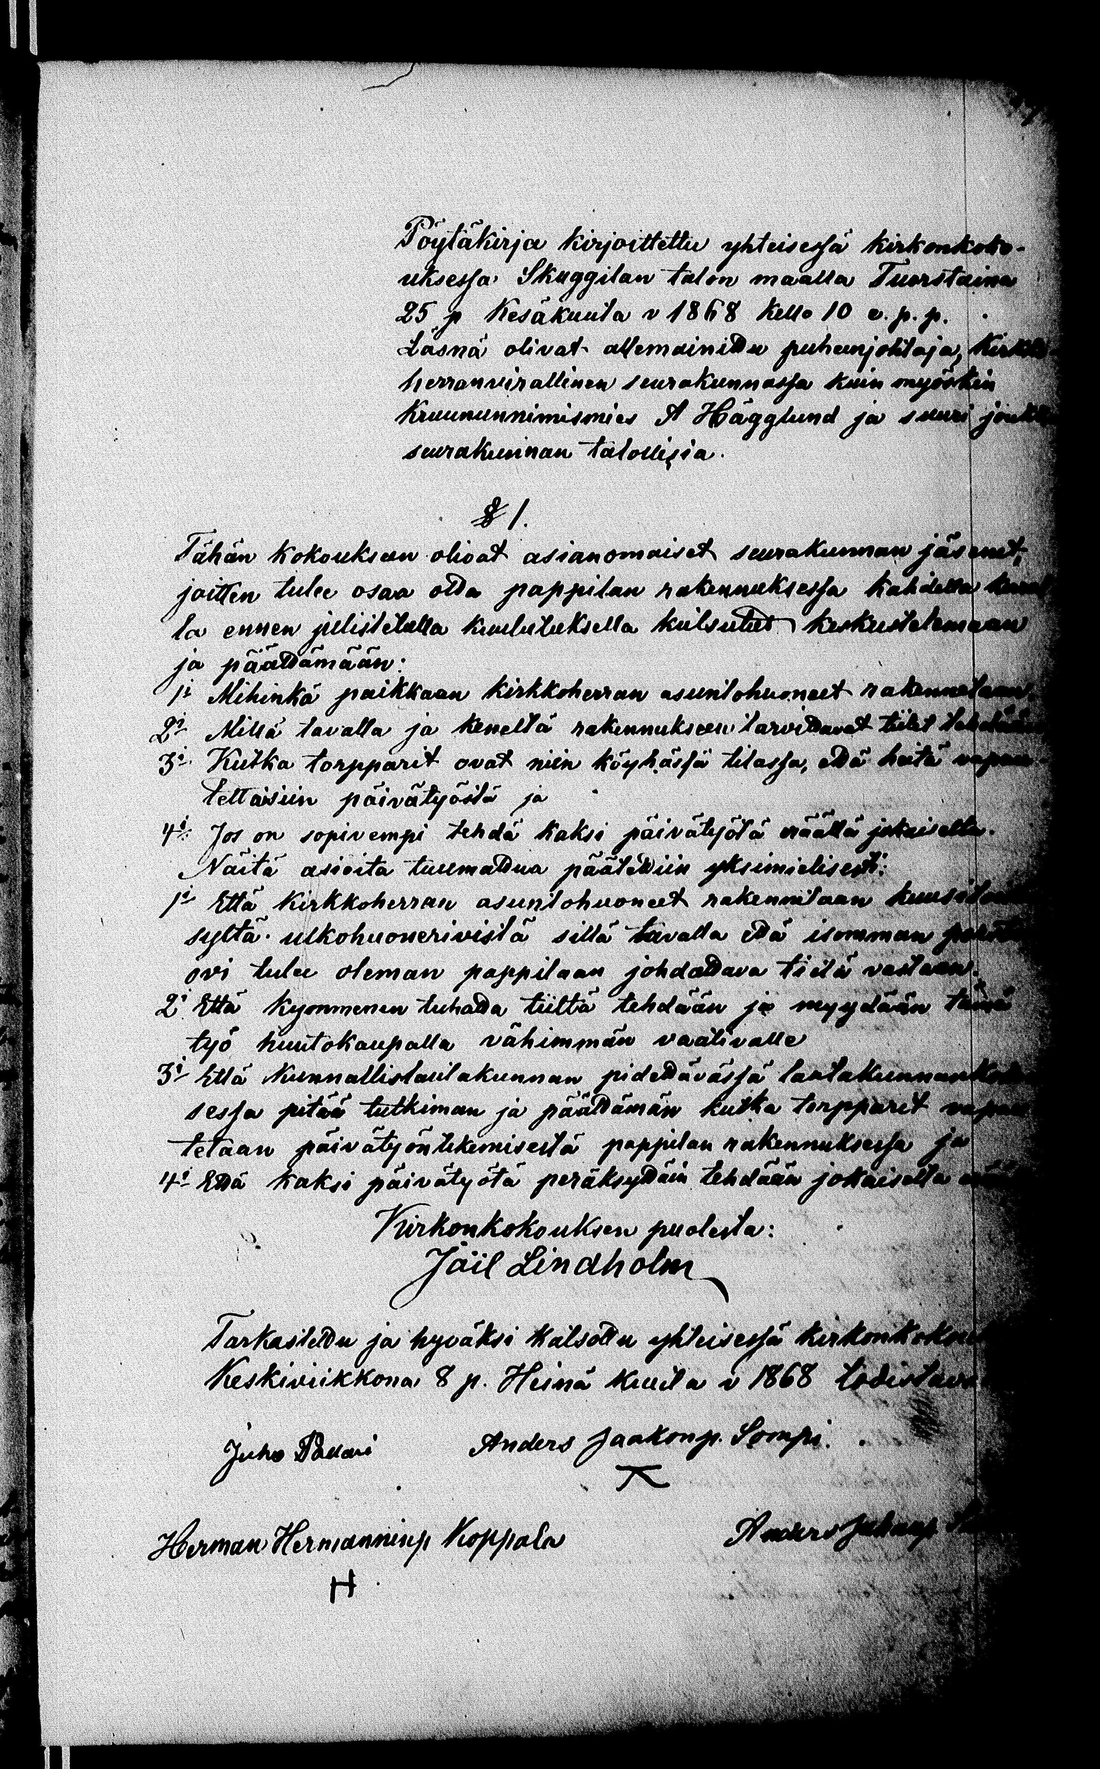 Pöytäkirja kirjoittettu yhteisessä kirkonkoko-
uksessa Skuggilan talon maalla Tuorstaina
25 p Kesäkuuta v 1868 kello 10 e. p. p.
Läsnä olivat allemainittu puheenjohtaja,
herranvirallinen seurakunnassa kuin myöskin
Kruununnimismies A Hägglund ja suuri
seurakunnan talollisia.
§ 1.
Tähän kokouksen olivat asianomaiset seurakunnan jäsenet,
joitten tulee osaa otta pappilan rakennuksessa kahdella
la ennen julistetulla kuulutuksella kutsutut keskustelemaan
ja päättämään:
1i Mihinkä paikkaan kirkkoherran asuntohuoneet rakennetaan
2i Millä tavalla ja keneltä rakennukseen tarvittavat tiilet
3i Kutka torpparit ovat niin köyhässä tilassa, että heitä
tettaisiin päivätyöstä ja
4i Jos on sopivempi tehdä kaksi päivätyötä päällä jokaiselta.
Näitä asioita tuumattua päätettiin yksimielisesti:
1i Että kirkkoherran asuntohuoneet rakennetaan
syltä ulkohuonerivistä sillä tavalla että isomman
ovi tulee oleman pappilaan johdattava tietä vastaan.
2i Että kymmenen tuhatta tiiltä tehdään ja myydään tämä
työ huutokaupalla vähimmän vaativalle
3i Että Kunnallislautakunnan pidettävässä
sessa pitää tutkiman ja päättämän kutka torpparit
tetaan päivätyöntekemisestä pappilan rakennuksessa ja
4i Että kaksi päivätyötä peräksyttäin tehdään jokaiselta
Kirkonkokouksen puolesta:
Jäil Lindholm
Tarkasteltu ja hyväksi katsottu yhteisessä
Keskiviikkona 8 p. Heinä kuuta v 1868
Juho Pallari Anders Jaakonp. Sompi.
Herman Hermanninp Koppala Anders Juhanp
H